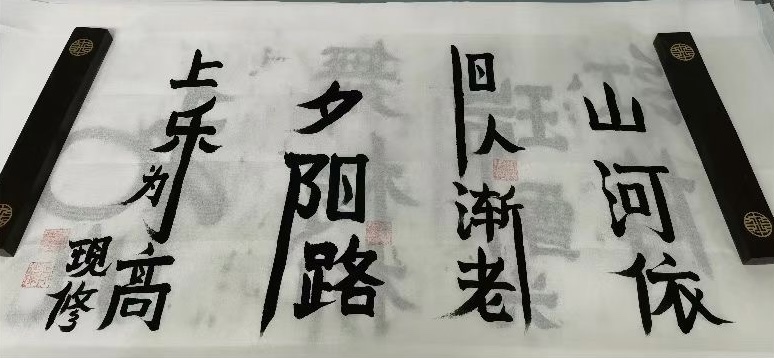 山河依
旧人渐老
夕阳路
上乐为高
现修